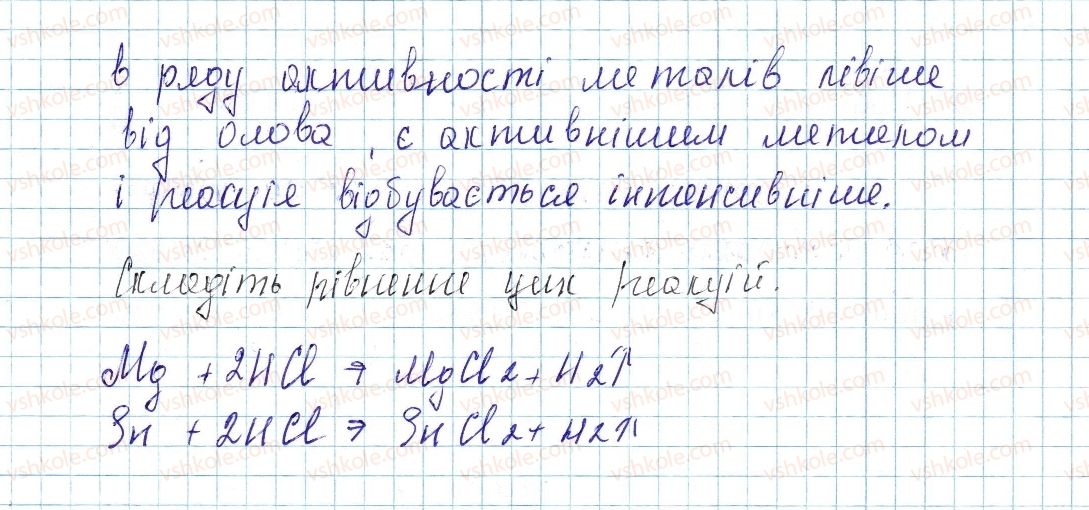 в ряду активності металів лівіше
від олова, є активнішим металом
і реакція відбувається інтенсивніше.
Складіть рівнення цих реакцій.
Mg + 2HCl → MgCl2 + H2↑
Zn + 2HCl → ZnCl2 + H2↑